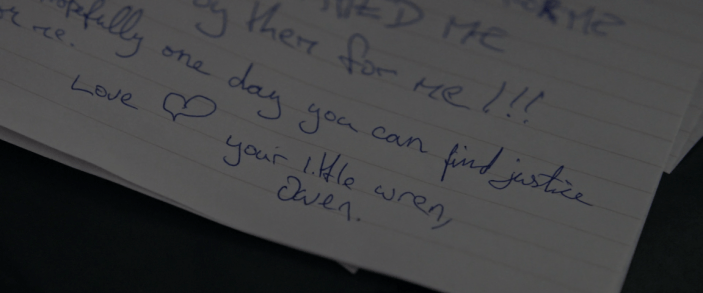 ME
ME
by them for me!!!
hopefully one day you can find justice
for me.
Love ♡
your little wren,
Owen.